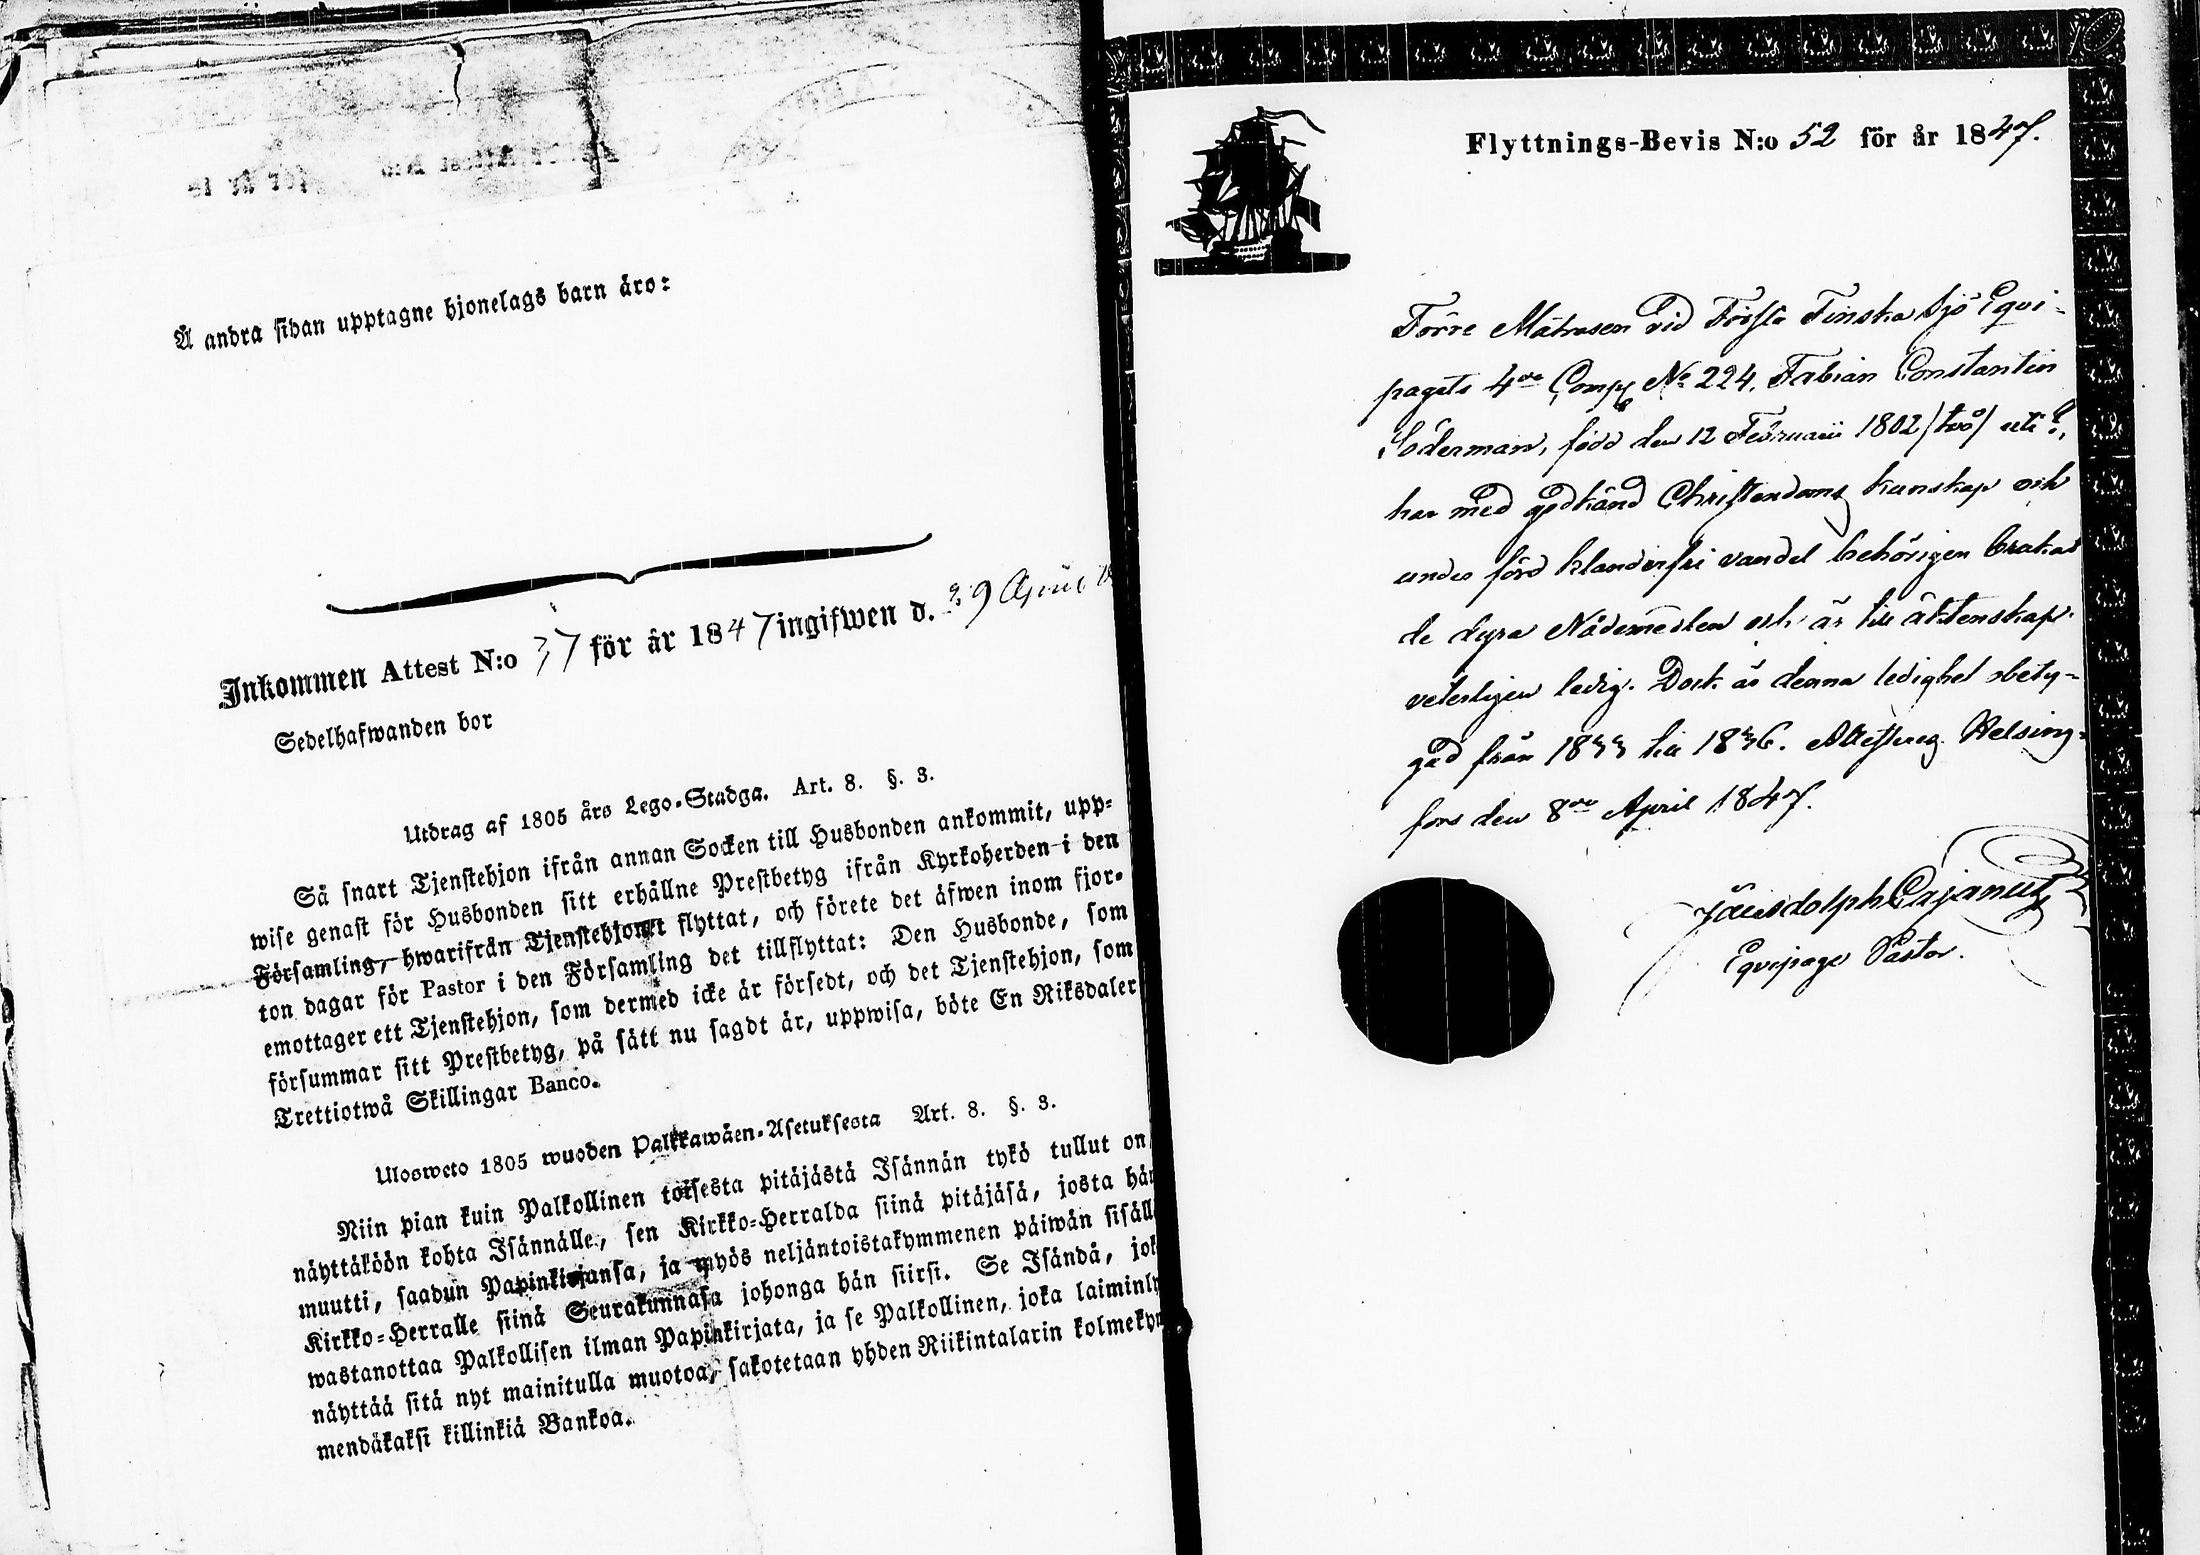 Å andra sidan upptagne hjonelags barn äro:
Inkommen Attest N:o 37 för år 1847 ingifwen d. 29 April
Sedelhafwanden bor
Utdrag af 1805 års Lego-Stadga. Art. 8. §. 3.
Så snart Tjenstehjon ifrån annan Socken till Husbonden ankommit, upp-
wise genast för Husbonden sitt erhållne Prestbetyg ifrån Kyrkoherden i den
Församling, hwarifrån Tjenstehjonet flyttat, och förete det äfwen inom fjor-
ton dagar för Pastor i den Församling det tillflyttat: Den Husbonde, som
emottager ett Tjenstehjon, som dermed icke är försedt, och det Tjenstehjon, som
försummar sitt Prestbetyg, på sätt nu sagdt är, uppwisa, böte En Riksdaler
Trettiotwå Skillingar Banco.
Ulosweto 1805 wuoden Palkkawäen-Asetuksesta Art. 8. §. 3.
Niin pian kuin Palkollinen toisesta pitäjästä Isännän tykö tullut on
näyttäköön kohta Isännälle, sen Kirkko-Herralda siinä pitäjäsä, josta hän
muutti, saadun Papinkirjansa, ja myös neljäntoistakymmenen päiwän sisäll
Kirkko-Herralle siinä Seurakunnasa johonga hän siirsi. Se Isändä, jok
wastanottaa Palkollisen ilman Papinkirjata, ja se Palkollinen, joka laiminly
näyttää sitä nyt mainitulla muotoa, sakotetaan yhden Riikintalarin kolmekym
mendäkaksi killinkiä Bankoa.
Flyttnings-Bevis N:o 52 för år 1847.
Förre Matrosen vid Första Finska Sjö Eqvi-
pagets 4de Comp. No 224, Fabian Constantin
Söderman, född den 12 Februarii 1802 /två/ uti
har med godkänd Christendoms kunskap och
under förd klanderfri vandel behörigen brukat
de dyra Nådemedlen och är till äktenskap
veterligen ledig. Dock är denna ledighet obety-
gad från 1833 till 1836. Attesteras Helsing-
fors den 8de April 1847.
Cajanus
Eqvipage Pastor.